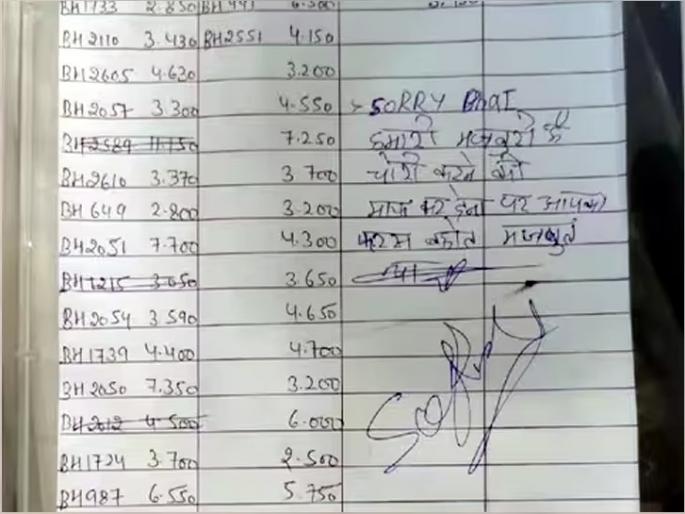 BH1733 2.850 BH991
BH2110 3.430 BH2551 4.150
BH2605 4.630 3.200
BH2057 3.300 4.550 SORRY BhaI
BH2589 11.150 7.250 हमारी मजबुरी है
BH2610 3.370 3.700 चोरी करने की
BH649 2.800 3.200 माफ कर देना पर आपका
BH2051 7.700 4.300 बहोत मजबुत
BH1215 3.050 3.650 था
BH2054 3.590 4.650
BH1739 4.400 4.700
BH2050 7.350 3.200
BH2012 4.500 6.000
BH1724 3.700 2.500
BH987 6.550 5.750